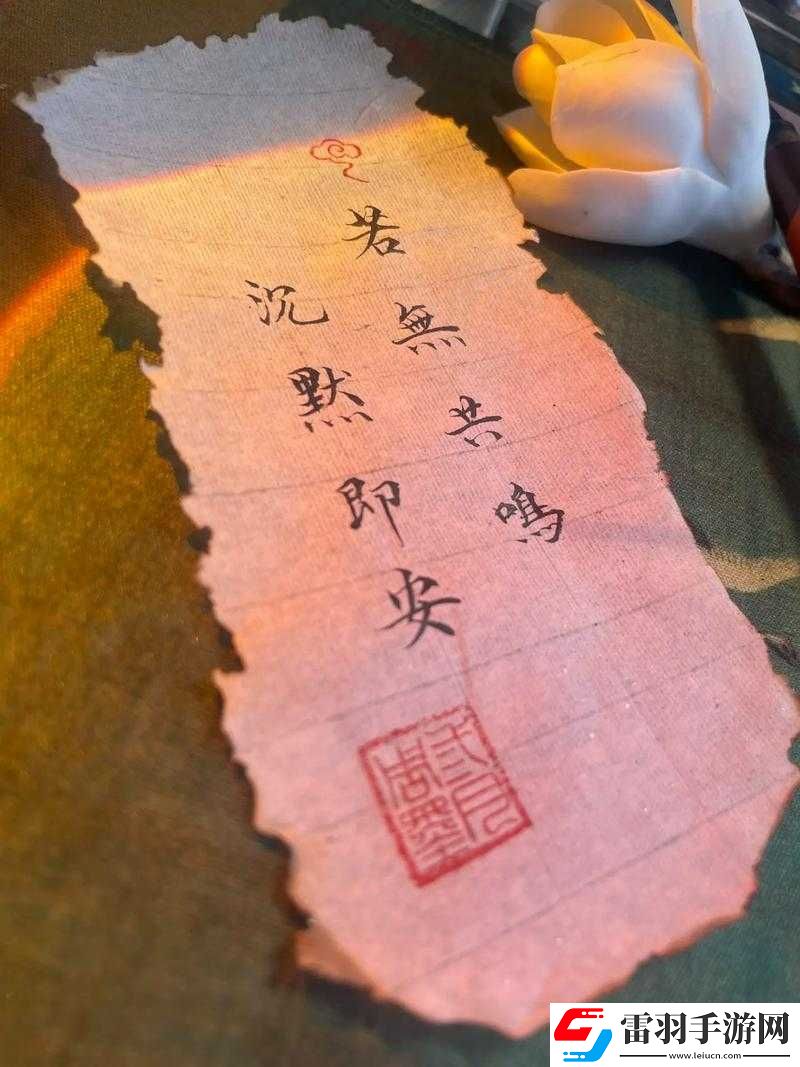 若無共鳴
沉默即安
雷羽手游网
www.leiucn.com